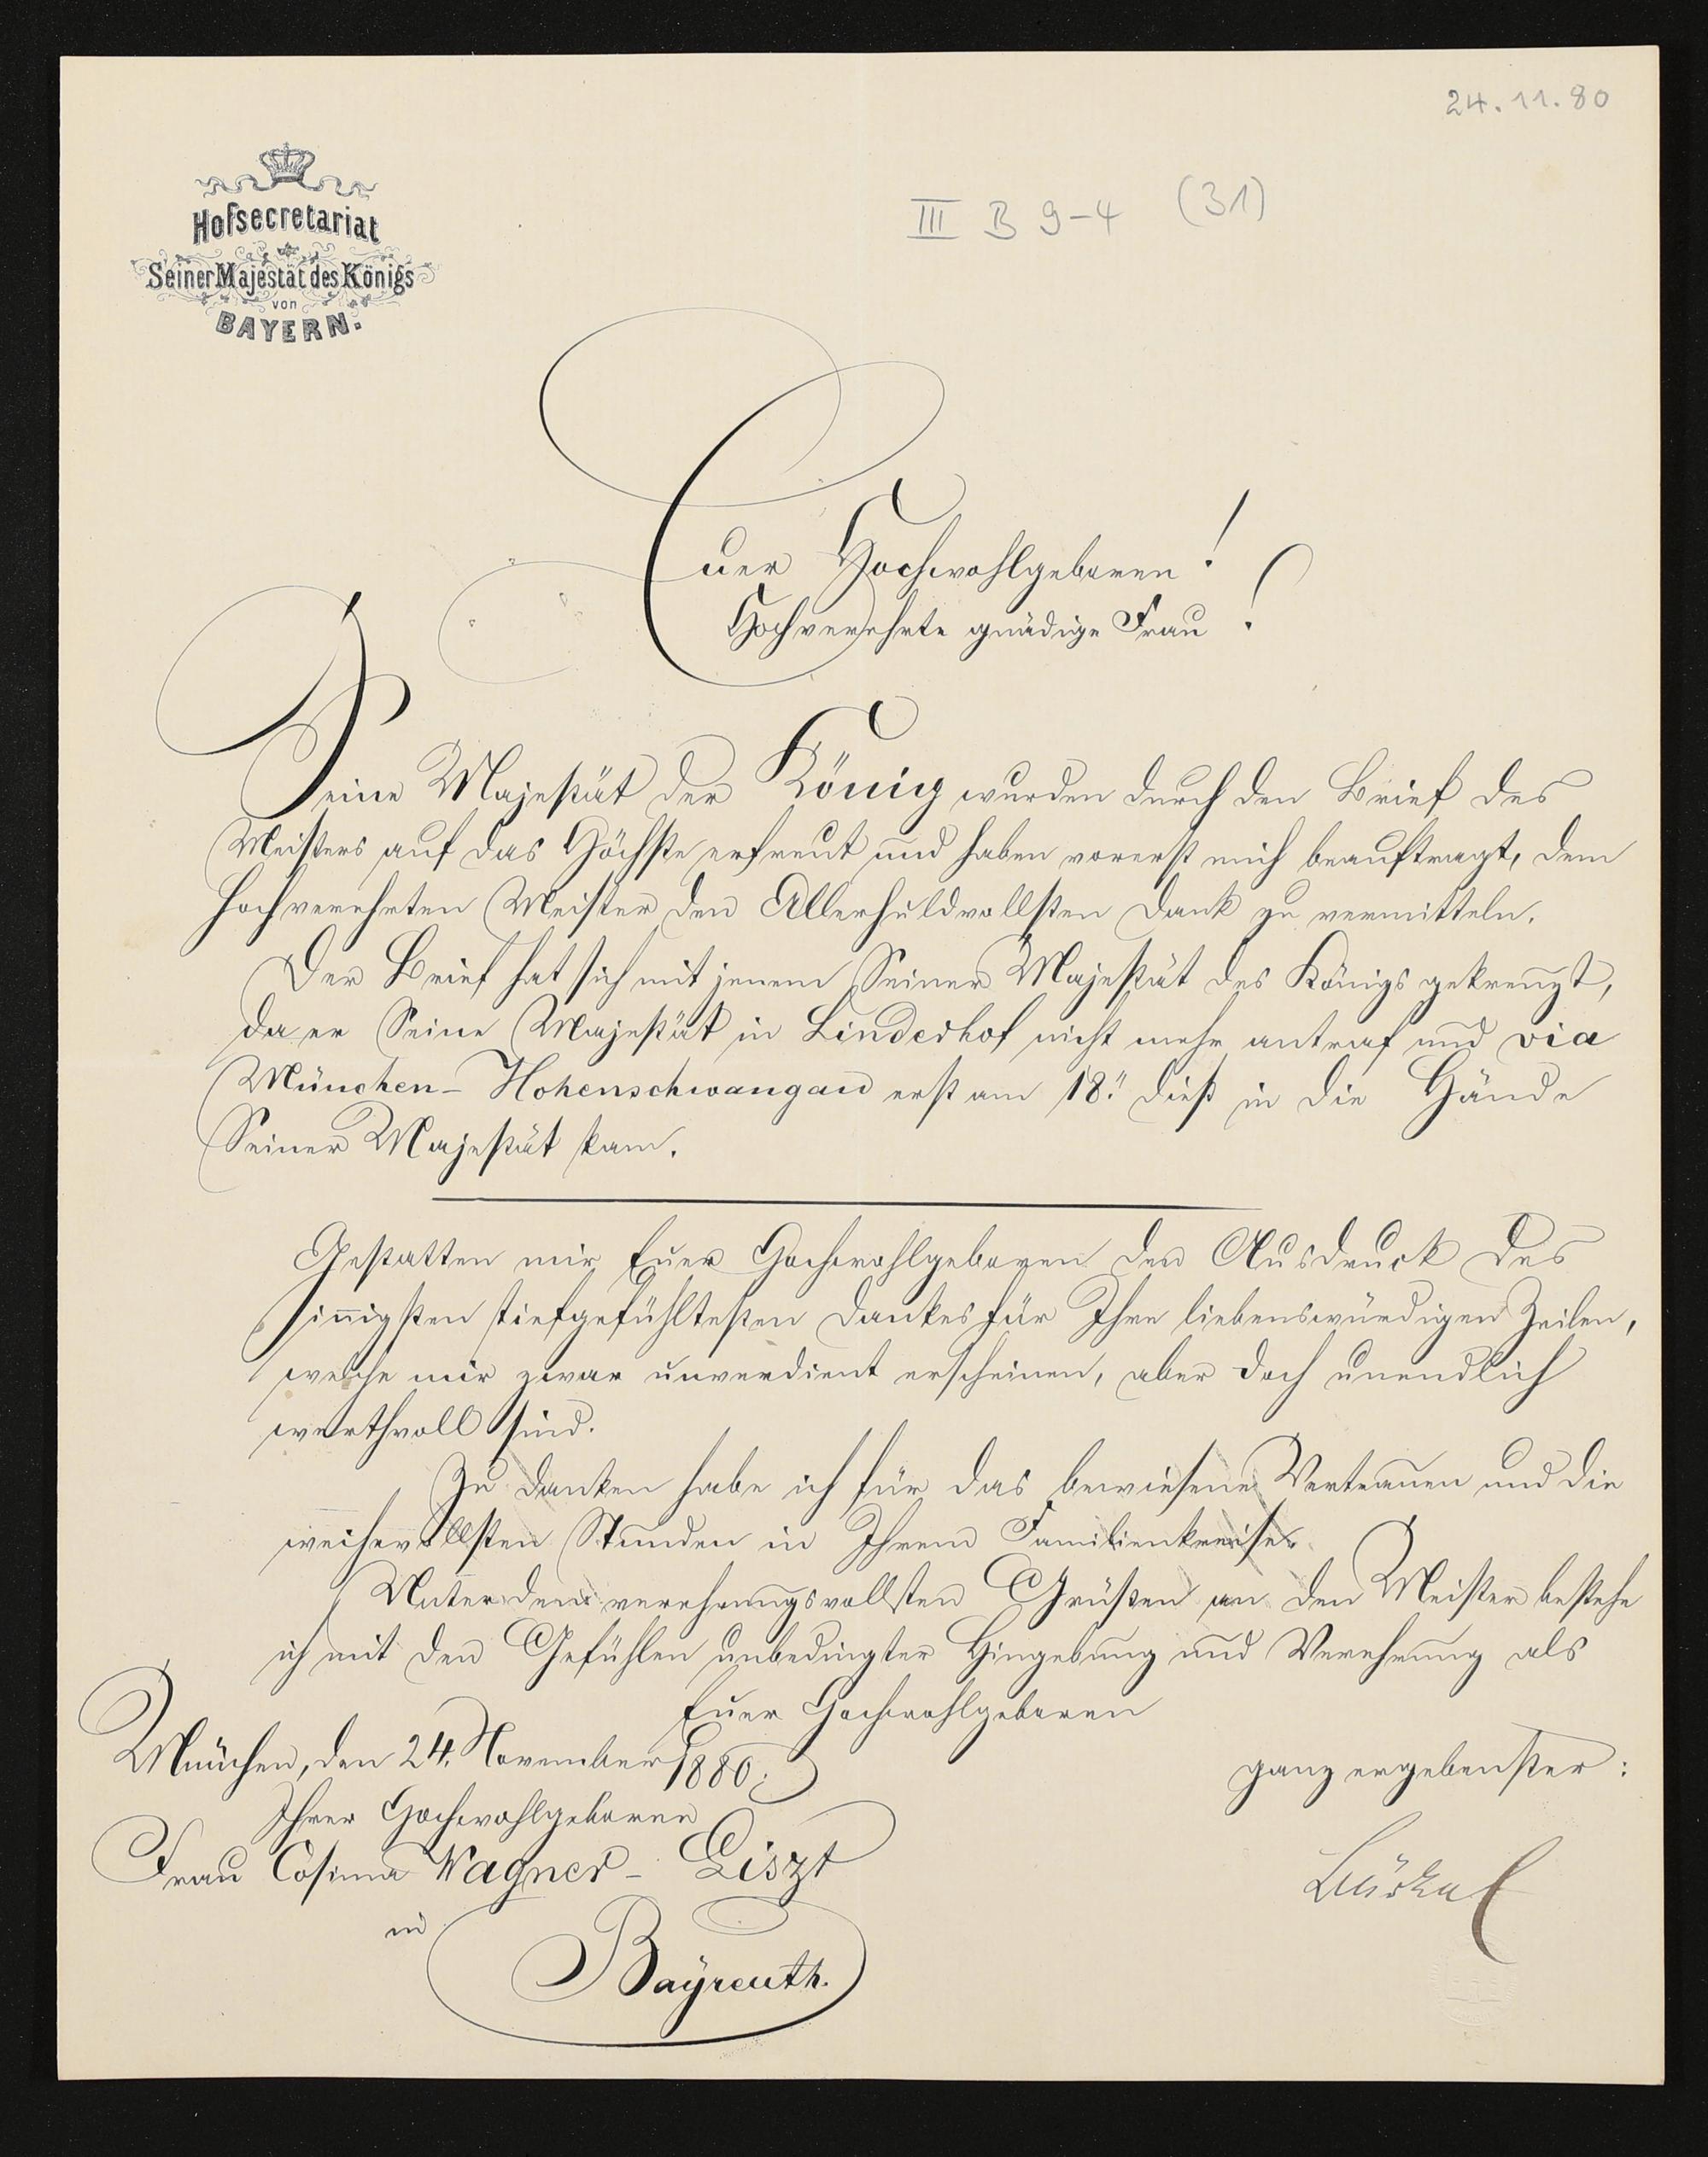 24.11.80
III B 9-4 (31)
Hofsecretariat
Seiner Majestät des Königs
von
BAYERN.
Euer Hochwohlgeboren!
Hochverehrte gnädige Frau!
Seine Majestät der König wurden durch den Brief des
Meisters auf das Höchste erfreut und haben vorerst mich beauftragt, dem
hochverehrten Meister den Allerhuldvollsten Dank zu vermitteln.
Der Brief hat sich mit jenem Seiner Majestät des Königs gekreuzt,
da er Seine Majestät in Linderhof nicht mehr antraf und via
München-Hohenschwangau erst am 18. dieß in die Hände
Seiner Majestät kam.
Gestatten mir Euer Hochwohlgeboren den Ausdruck des
innigsten tiefgefühltesten Dankes für Ihre liebenswürdigen Zeilen,
welche mir zwar unverdient erscheinen, aber doch unendlich
werthvoll sind.
Zu danken habe ich für das bewiesene Vertrauen und die
weihevollsten Stunden in Ihrem Familienkreise.
Unter den verehrungsvollsten Grüßen an den Meister bestehe
ich mit den Gefühlen unbedingter Hingebung und Verehrung als
Euer Hochwohlgeboren
München, den 24. November 1880.
ganz ergebenster:
Ihrer Hochwohlgeboren
Frau Cosima Wagner-Liszt
Bürkel
in
Bayreuth.